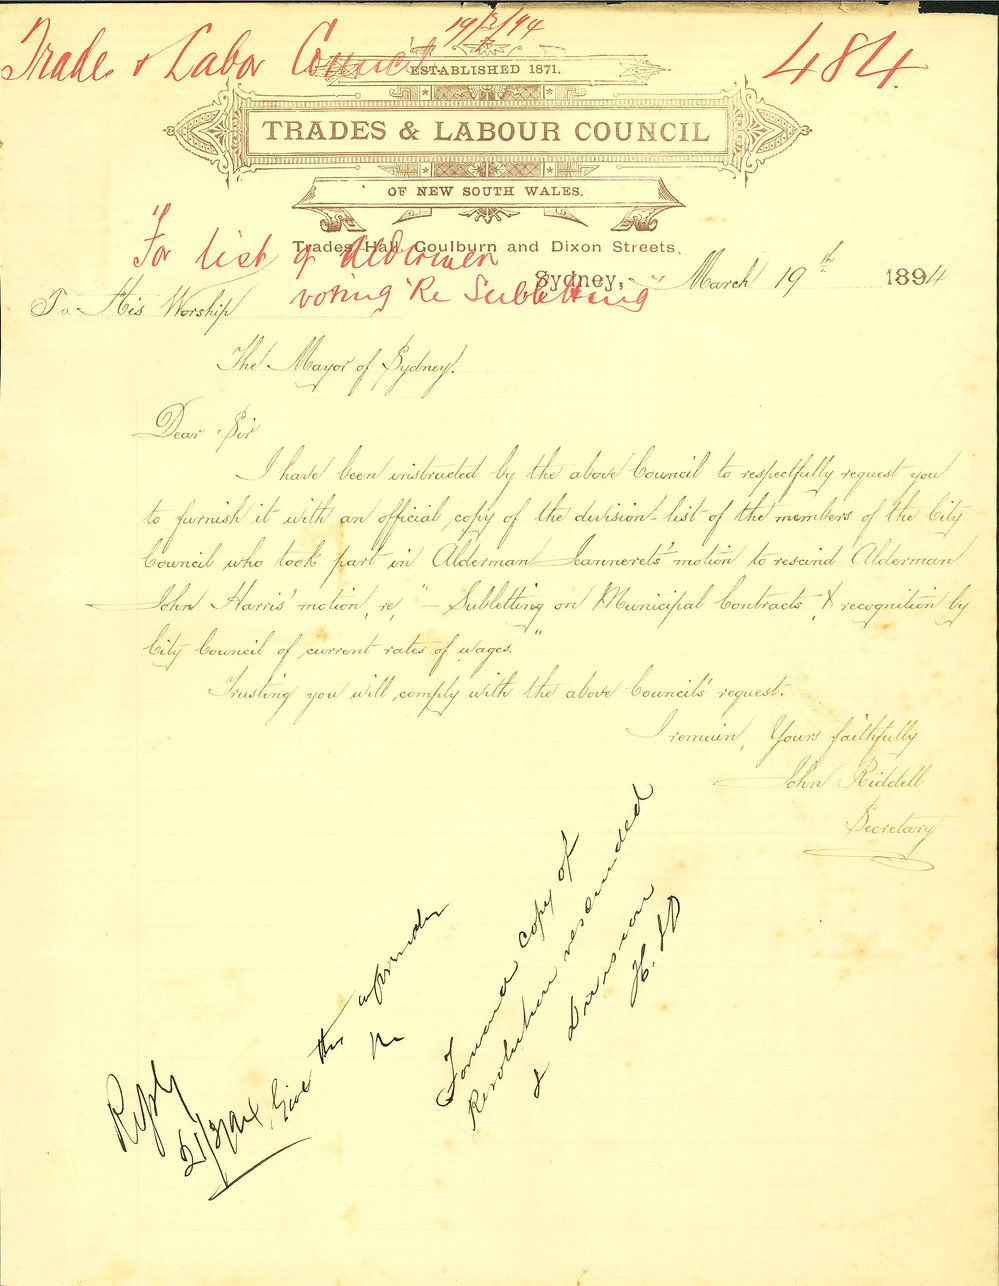 19/3/94
Trades & Labor Council
484.
ESTABLISHED 1871.
TRADES & LABOUR COUNCIL
OF NEW SOUTH WALES.
Trades Hall, Goulburn and Dixon Streets,
"For list of Aldermen
voting "Re Subletting"
Sydney, March 19th 1894
To His Worship
The Mayor of Sydney.
Dear Sir
I have been instructed by the above Council to respectfully request you
to furnish it with an official copy of the division-list of the members of the City
Council who took part in Alderman Jeanneret's motion to rescind Alderman
John Harris' motion, re, "- Subletting on Municipal Contracts, & recognition by
City Council of current rates of wages."
Trusting you will comply with the above Councils' request.
I remain, Yours faithfully
John Riddell
Secretary
Forward copy of
Resolution rescinded
& Division
Give this
Reply
21/3/94